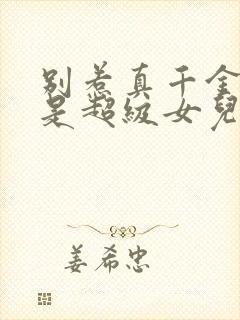 别惹真千金
是超级女儿
姜希忠